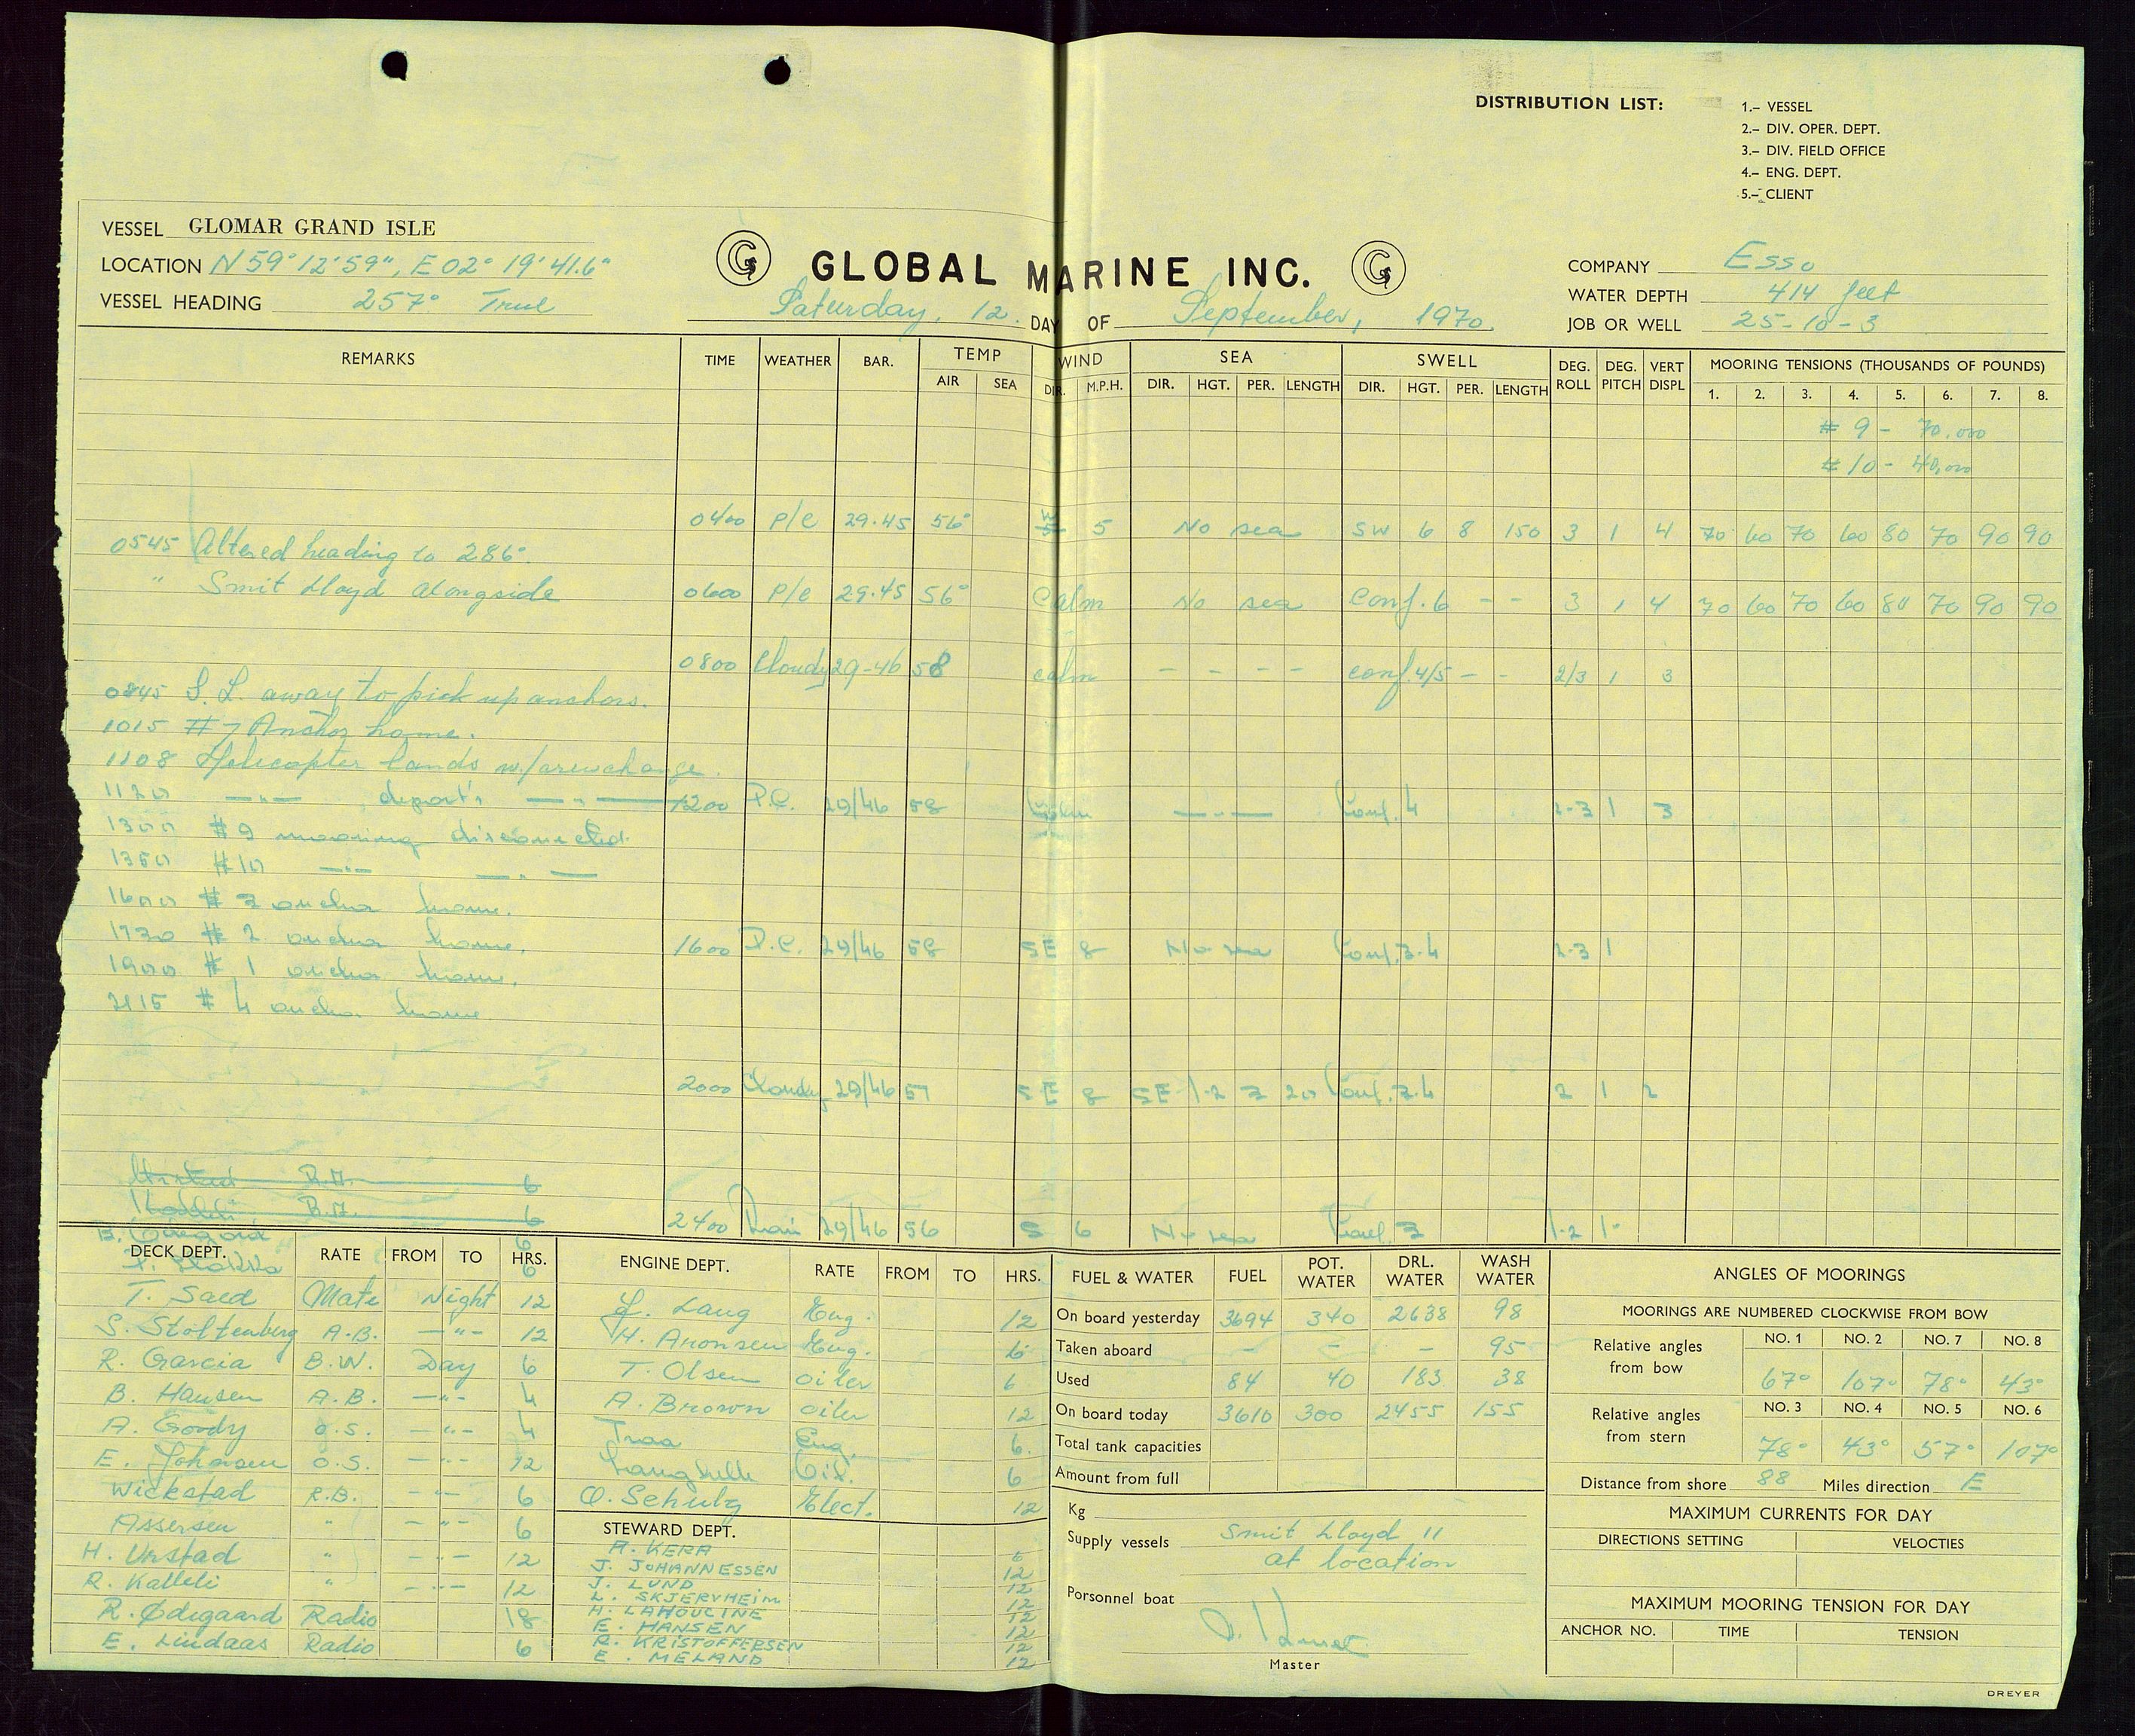 DISTRIBUTION LIST:
1.– VESSEL
2.– DIV. OPER. DEPT.
3.– DIV. FIELD OFFICE
4.– ENG. DEPT.
5.– CLIENT
VESSEL GLOMAR GRAND ISLE
LOCATION N 59° 12' 59", E 02° 19' 41.6"
VESSEL HEADING 257° True
GLOBAL MARINE INC.
Saturday, 12. DAY OF September, 1970.
COMPANY Esso
WATER DEPTH 414 feet
JOB OR WELL 25-10-3
REMARKS TIME WEATHER BAR. TEMP WIND SEA SWELL DEG. ROLL DEG. PITCH VERT DISPL MOORING TENSIONS (THOUSANDS OF POUNDS)
AIR SEA DIR. M.P.H. DIR. HGT. PER. LENGTH DIR. HGT. PER. LENGTH 1. 2. 3. 4. 5. 6. 7. 8.
# 9 - 70.000
# 10 - 40,000
0400 P/c 29.45 56° 5 No sea SW 6 8 150 3 1 4 70 60 70 60 80 70 90 90
0545 Altered heading to 286°.
" Smit Lloyd alongside 0600 P/c 29.45 56° Calm No sea Conf. 6 - - 3 1 4 70 60 70 60 80 70 90 90
0800 Cloudy 29-46 58 calm - - - - conf. 4/5 - - 2/3 1 3
0845 S. L. away to pick up anchors.
1015 # 7 Anchor home.
1108 Helicopter lands w/crewchange.
1120 —"— depart's —"— 1200 P.C. 29/46 58 Calm —"— Conf. 4 2-3 1 3
1300 # 9 mooring disconnected.
1350 # 10 —"— —"—
1600 # 3 anchor home.
1730 # 2 anchor home. 1600 P.C. 29/46 58 SE 8 No sea Conf. 3-4 2-3 1
1900 # 1 anchor home.
2115 # 4 anchor home.
2000 Cloudy 29/46 57 SE 8 SE 1-2 3 20 Conf. 3-4 2 1 2
6
6
2400 Rain 29/46 56 S 6 No sea Conf. 3 1-2 1
6
6
DECK DEPT. RATE FROM TO HRS.
T. Saed Mate Night 12
S. Stoltenberg A.B. —"— 12
R. Garcia B.W. Day 6
B. Hansen A.B. —"— 4
A. Goody O.S. —"— 4
E. Johansen O.S. —"— 12
Wickstad R.B. —"— 6
Assersen " —"— 6
H. Urstad " —"— 12
R. Kalleli " —"— 12
R. Ødegaard Radio 18
E. Lindaas Radio 6
ENGINE DEPT. RATE FROM TO HRS.
L. Laug Eng. 12
H. Aronsen Eng. 6
T. Olsen oiler 6
A. Brown oiler 12
Traa Eng. 6.
Oil. 6
O. Schulz Elect. 12
STEWARD DEPT.
A. KERA 6
J. JOHANNESSEN 12
J. LUND 12
L. SKJERVHEIM 12
H. LAHOUCINE 12
E. HANSEN 12
R. KRISTOFFERSEN 12
E. MELAND 12
FUEL & WATER FUEL POT. WATER DRL. WATER WASH WATER
On board yesterday 3694 340 2638 98
Taken aboard - - - 95
Used 84 40 183 38
On board today 3610 300 2455 155
Total tank capacities
Amount from full
Kg
Supply vessels Smit Lloyd 11
at location
Porsonnel boat
Master
ANGLES OF MOORINGS
MOORINGS ARE NUMBERED CLOCKWISE FROM BOW
Relative angles from bow NO. 1 NO. 2 NO. 7 NO. 8
67° 107° 78° 43°
Relative angles from stern NO. 3 NO. 4 NO. 5 NO. 6
78° 43° 57° 107°
Distance from shore 88 Miles direction E
MAXIMUM CURRENTS FOR DAY
DIRECTIONS SETTING VELOCTIES
MAXIMUM MOORING TENSION FOR DAY
ANCHOR NO. TIME TENSION
DREYER